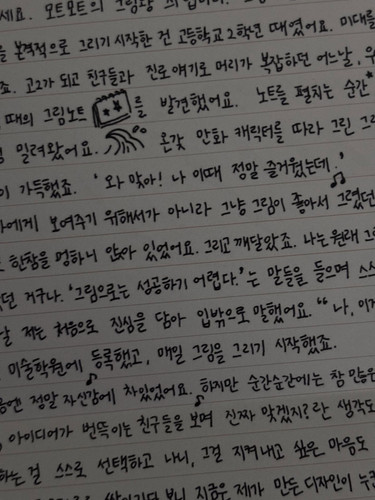 세요. 오토모트의 그림왕
을 본격적으로 그리기 시작한 건 고등학교 2학년 때였어요. 미대를
죠. 고2가 되고 친구들과 진로 얘기로 머리가 복잡하던 어느날, 우
때의 그림노트 를 발견했어요. 노트를 펼치는 순간
밀려왔어요. 온갖 만화 캐릭터를 따라 그린 그
이 가득했죠. '와 맞아! 나 이때 정말 즐거웠는데.'
가에게 보여주기 위해서가 아니라 그냥 그림이 좋아서 그렸던
한참을 멍하니 앉아 있었어요. 그리고 깨달았죠. 나는 원래 그
던 거구나. '그림으로는 성공하기 어렵다.'는 말들을 들으며 스스
날 저는 처음으로 진심을 담아 입밖으로 말했어요. "나, 이거
미술학원에 등록했고, 매일 그림을 그리기 시작했죠.
음엔 정말 자신감에 차있었어요. 하지만 순간순간에는 참 많은
아이디어가 번뜩이는 친구들을 보며 진짜 맞겠지?란 생각도
하는 걸 스스로 선택하고 나니, 그걸 지켜내고 싶은 마음도
보니 지금은 제가 만든 디자인이 누군